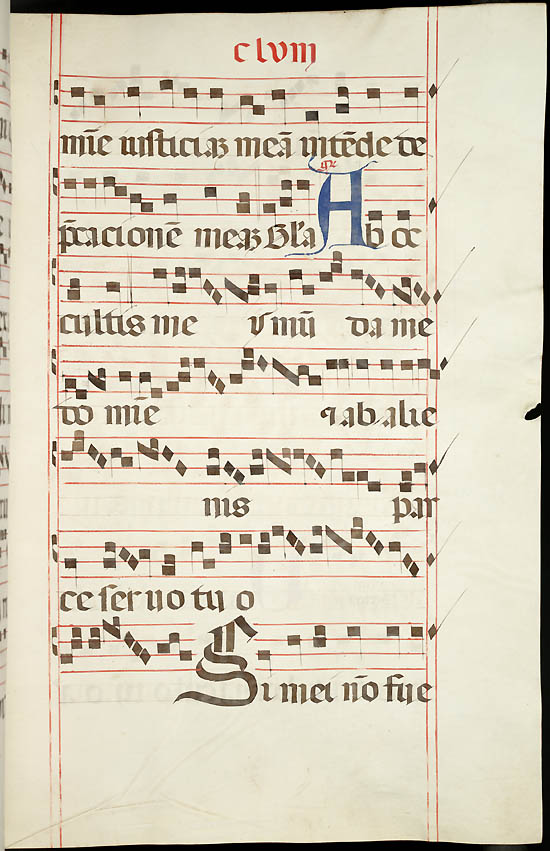 clviii
mīe iusticiaꝫ meā intēde de
p̄cacionē meaꝫ Gl'a Ab oc
gr̄
cultis me is mū da me
do mīe ⁊ ab alie
nis par
ce ser uo tu o
Si mei nō fue